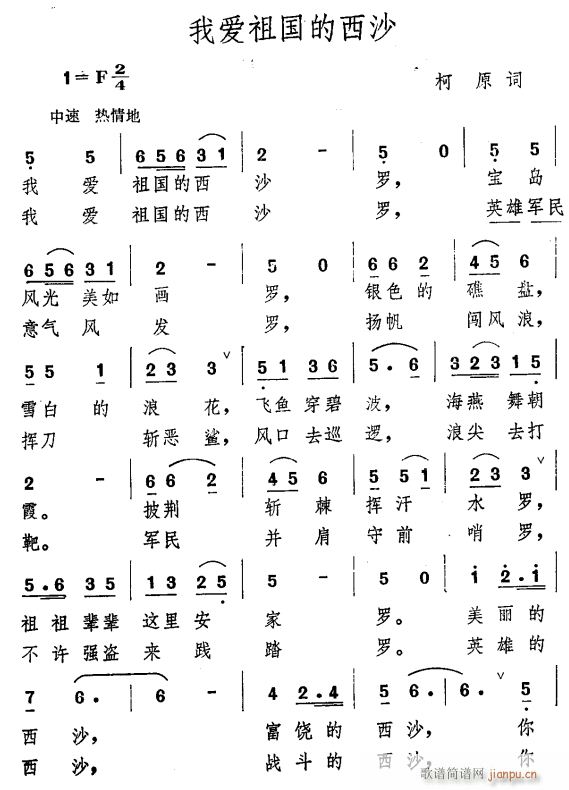 我爱祖国的西沙
1=F 2/4
柯 原 词
中速 热情地
5 5 | 656 31 | 2 - | 5 0 | 5 5
我 爱 祖国的西 沙 罗, 宝 岛
我 爱 祖国的西 沙 罗, 英雄军民
656 31 | 2 - | 5 0 | 66 2 | 45 6
风光 美如 画 罗, 银色的 礁盐,
意气 风 发 罗, 扬帆 闯风浪,
55 1 | 23 3 ∨ | 51 36 | 5. 6 | 323 15
雪白 的 浪 花, 飞鱼 穿碧 波, 海燕 舞朝
挥刀 斩恶 鲨, 风口 去巡 逻, 浪尖 去打
2 - | 66 2 | 45 6 | 5 51 | 23 3 ∨
霞。 披荆 斩 棘 挥汗 水 罗,
靶。 军民 并 肩 守前 哨 罗,
5.6 35 | 13 25 | 5 - | 5 0 | 1 2.1
祖祖 辈辈 这里 安 家 罗。 美丽的
不许 强盗 来 践 踏 罗。 英雄的
7 6. | 6 - | 4 2.4 | 5 6. | 6. ∨ 5
西 沙, 富饶的 西 沙, 你
西 沙, 战斗的 西 沙, 你
歌谱简谱网
jianpu.cn